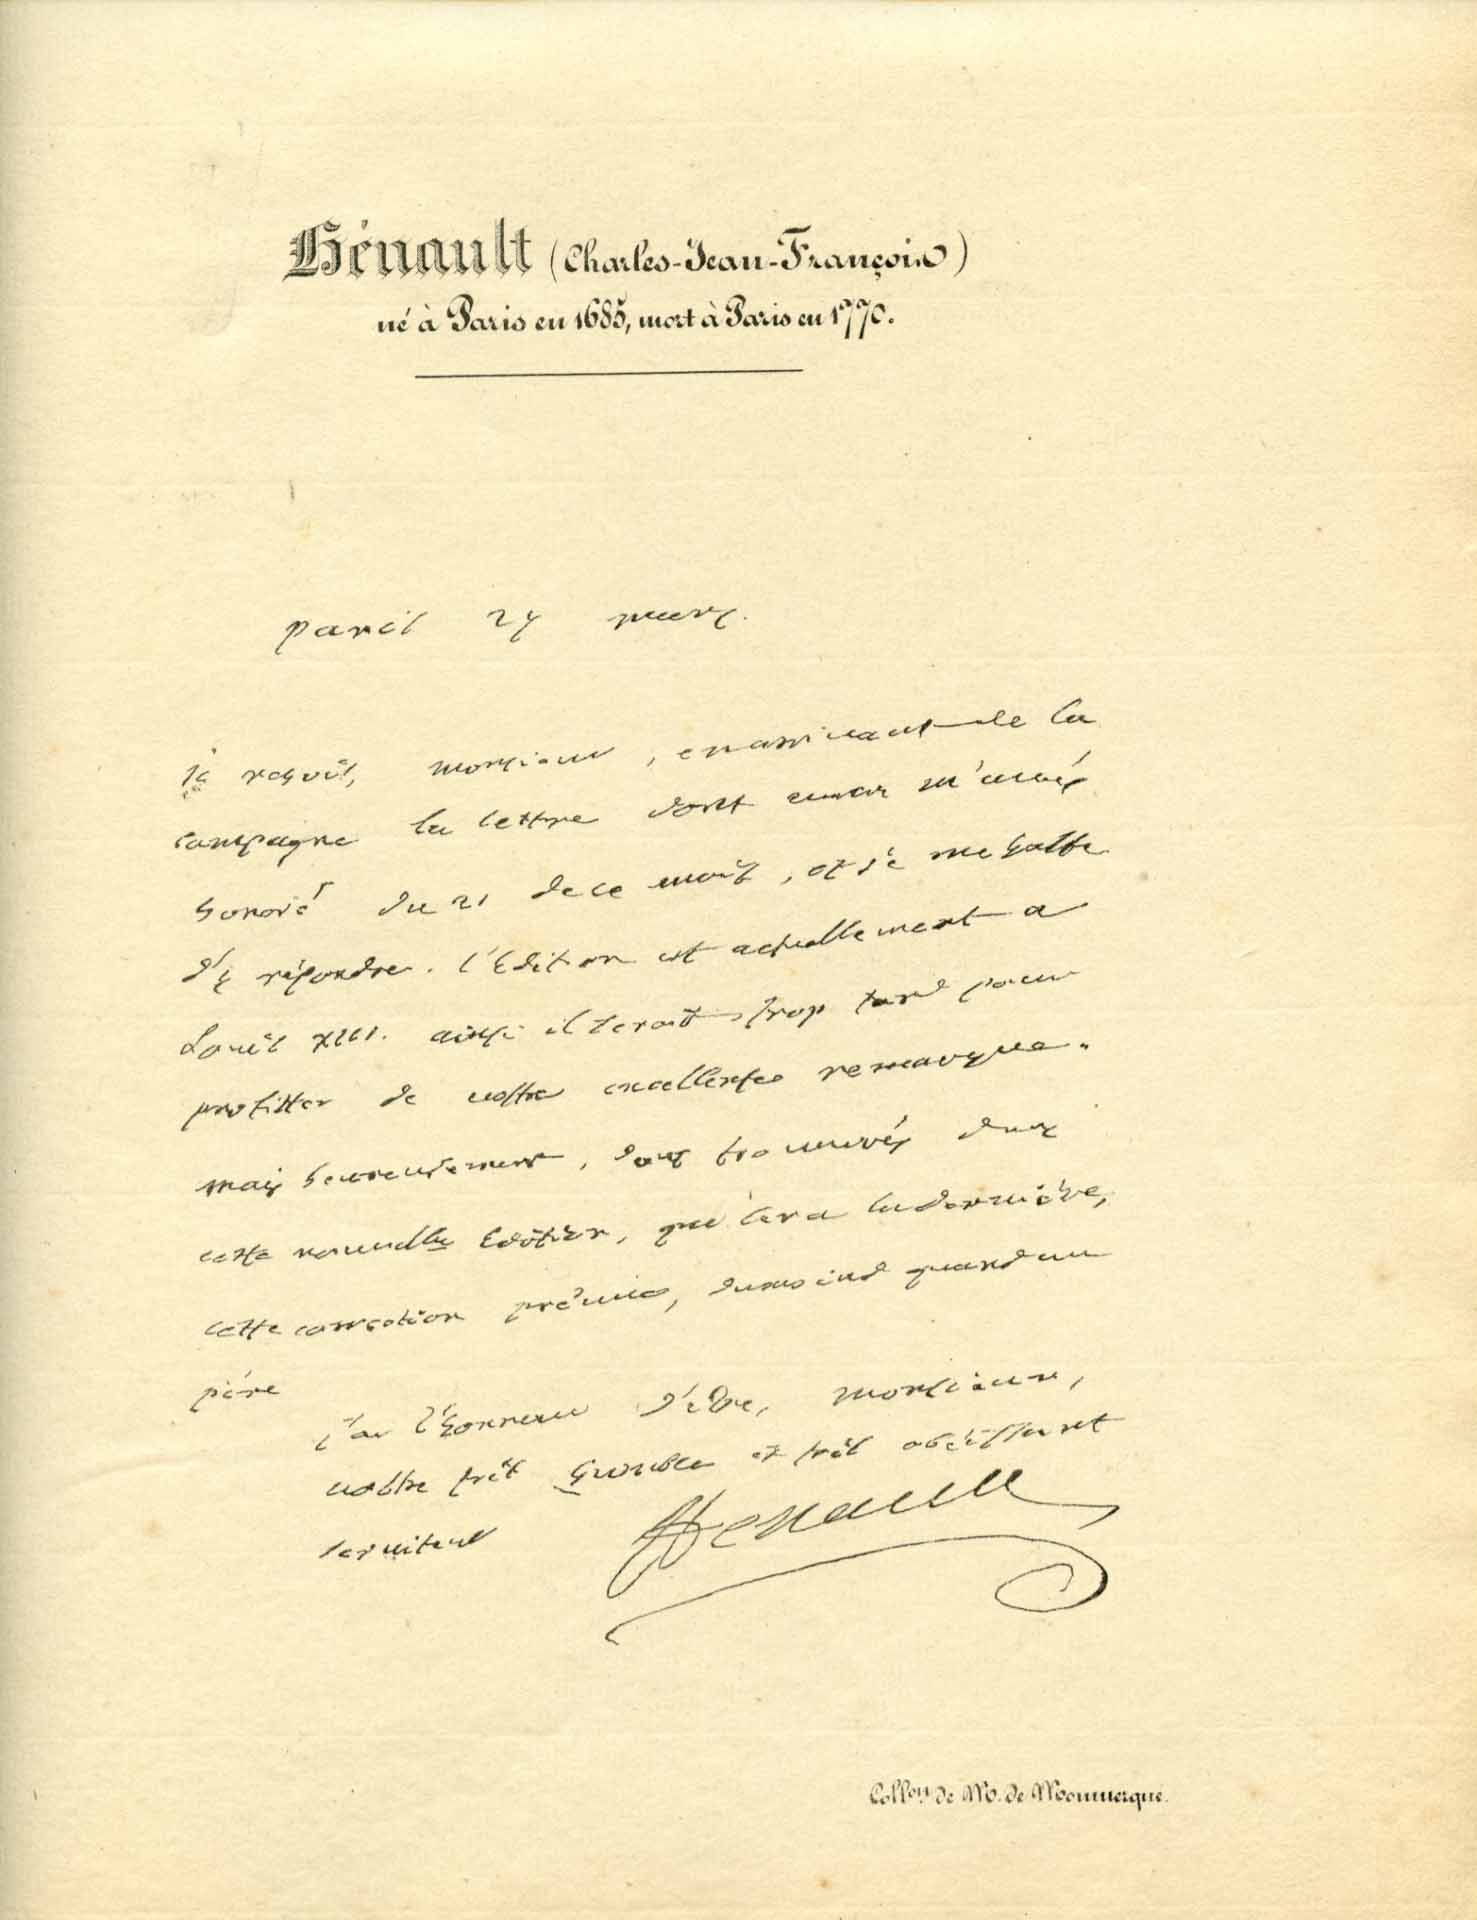 Hénault (Charles-Jean-François)
né à Paris en 1685, mort à Paris en 1770.
paris 27 mars.
je reçois, monsieur, en arrivant de la
campagne la lettre dont m'avés
honoré du 21 de ce mois, et je me hatte
d'y répondre. l'Edition est actuellement a
Louis XIII. ainsi il seroit trop tard pour
profitter de vostre excellente remarque.
mais heureusement, vous trouverés dans
cette nouvelle Edition, qui sera la derniére,
cette correction
pére
j'ai l'honneur d'être, monsieur,
vostre trés humble et trés obéissant
serviteur Henault
Collon. de M. de Monmerqué.